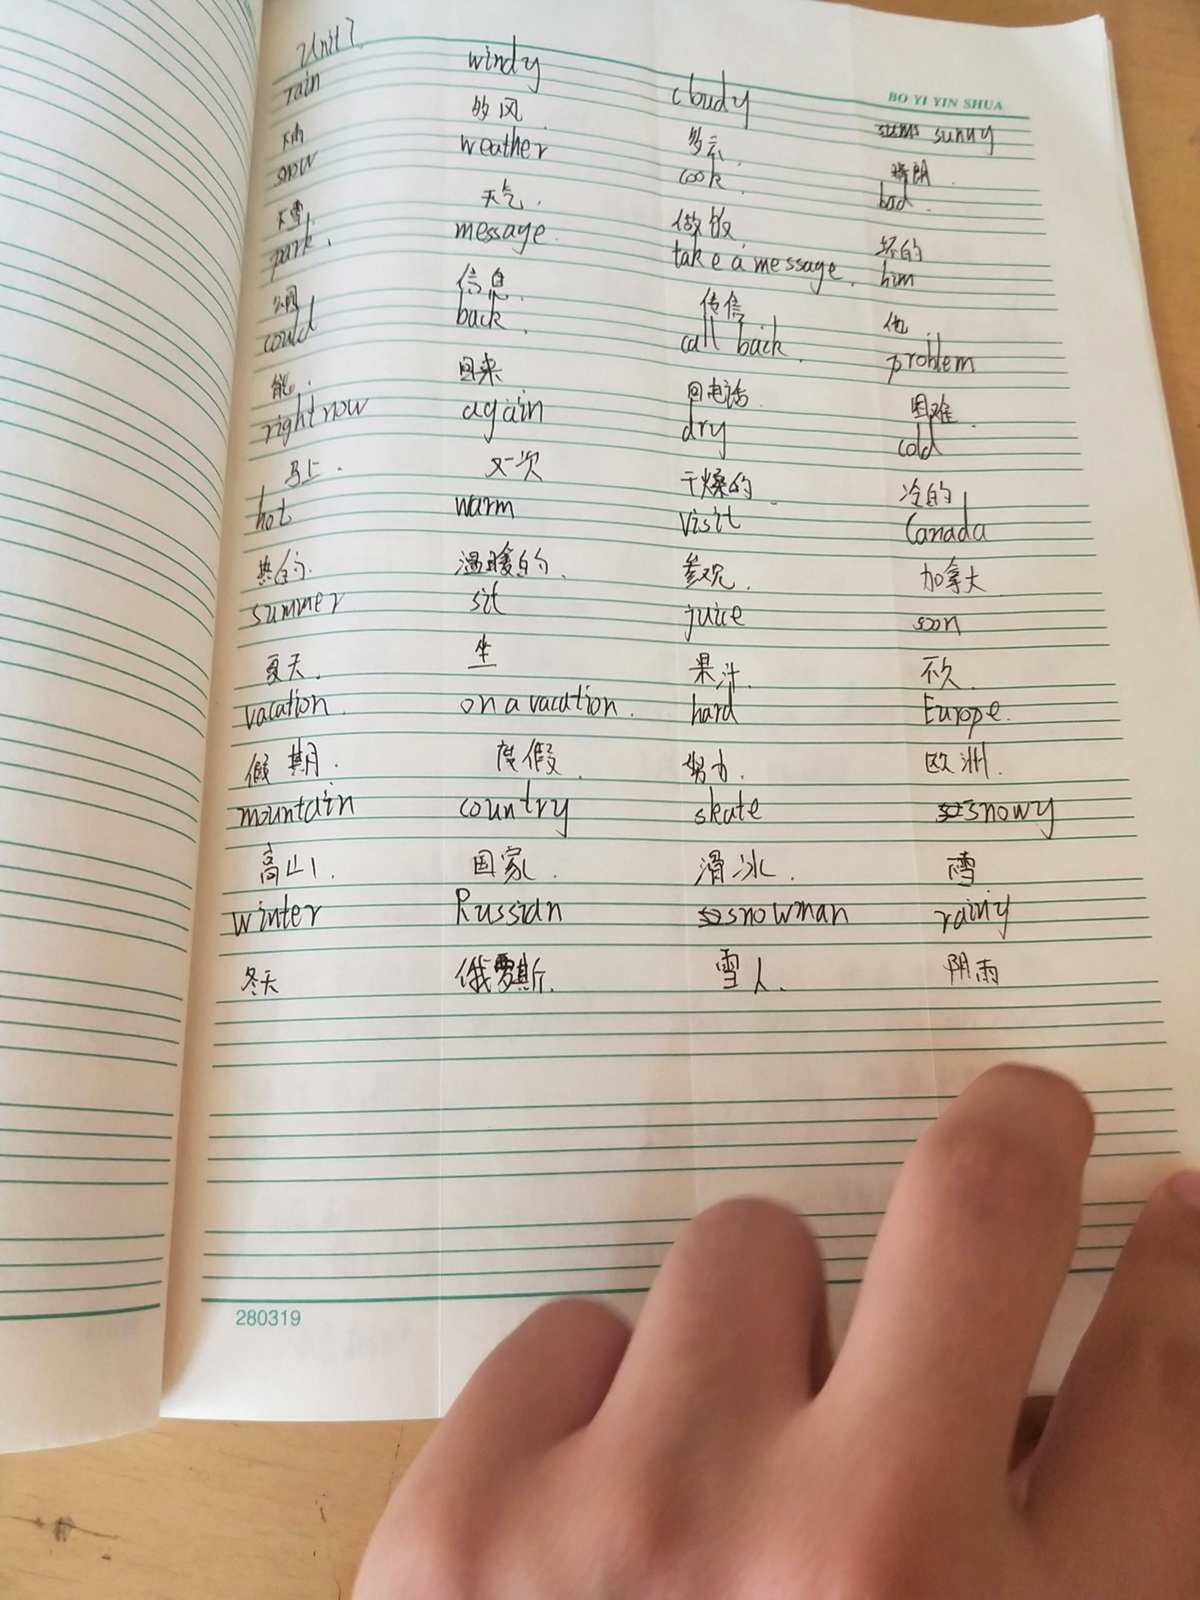 Unit 7.
BO YI YIN SHUA
rain windy cloudy sunny
下雨 的风. 多云. 晴朗.
snow weather cook. bad.
下雪. 天气. 做饭. 坏的
park. message. take a message. him
公园 信息. 传信 他.
could back. call back. problem
能. 回来 回电话. 困难.
right now again dry cold
马上. 又一次 干燥的. 冷的
hot warm visit Canada
热的. 温暖的. 参观. 加拿大
summer sit juice soon
夏天. 坐 果汁. 不久.
vacation. on a vacation. hard Europe.
假期. 度假. 努力. 欧洲.
mountain country skate snowy
高山. 国家. 滑冰. 雪
winter Russian snowman rainy
冬天 俄罗斯. 雪人. 阴雨
280319